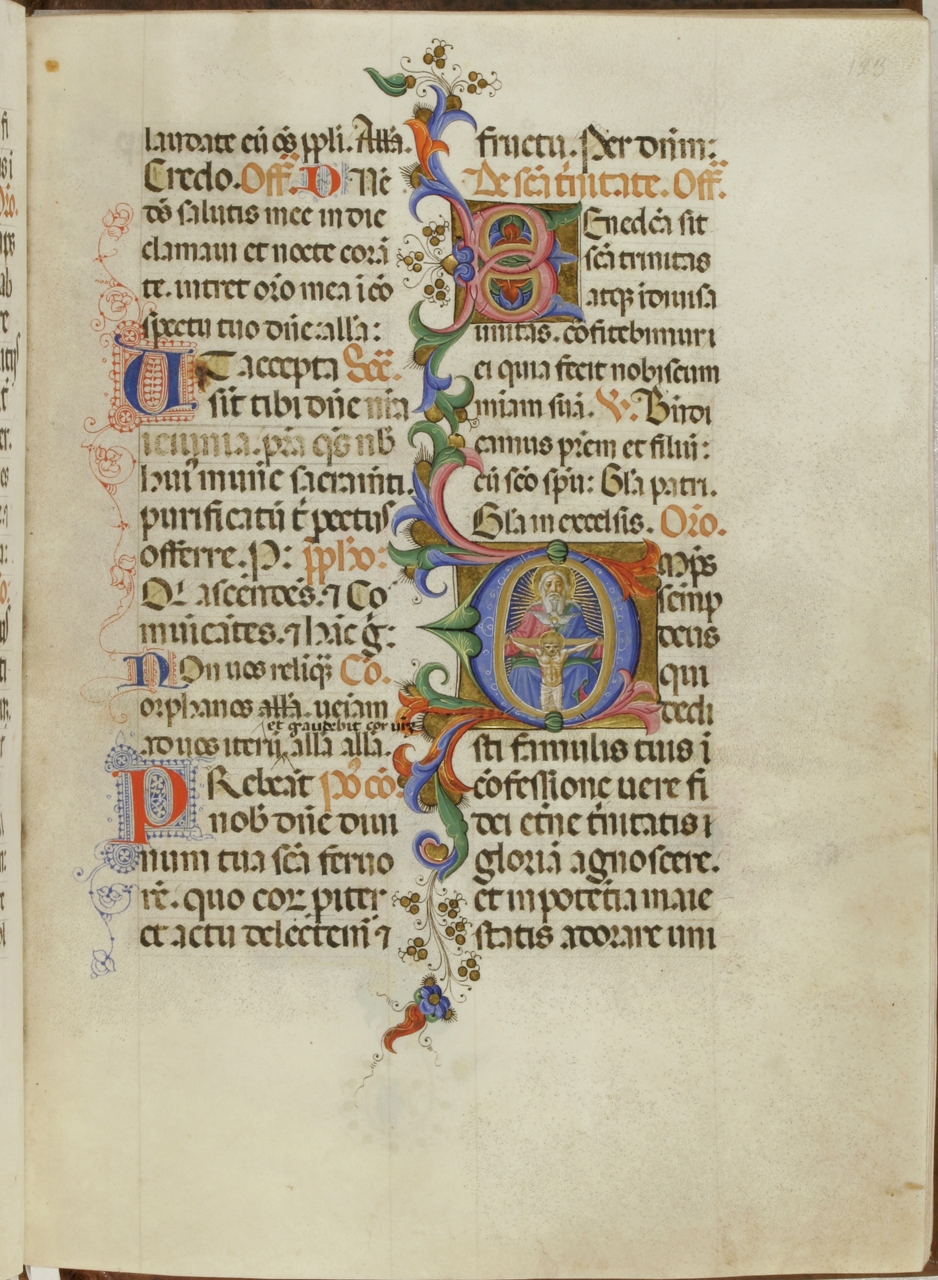 laudate eū oēs ppli. Alla.
Credo. Off. D Nē
ds̄ salutis mee in die
clamaui et nocte corā
te. intret orō mea ī cō
spectu tuo dn̄e: alla:
UT accepta Sec̄.
sīt tibi dn̄e nr̄a
ieiunia. pr̄a qs̄ nb̄
huīꝰ munīc sacram̄ti.
purificatū t̄ pectus
offerre. P: pplo:
OL ascendēs. ⁊ Co
mūicātes. ⁊ hāc ḡ:
NOn uos relīq̄ Cō.
orphanos alla. ueiam
et gaudebit cor ur̄m
ad uos iterū, alla alla.
PRebeāt Po cō
nob̄ dn̄e diui
num tua scā feruo
rē. quo coꝝ pīter
et actu delectem̄ ⁊
fructu. Per dn̄m:
De scā tīnitate. Off.
BEnedcā sit
scā trinitas
atqꝫ īdiuisa
unitas. cōfitebimur
ei quia fecit nobiscum
mīam suā. V. Bn̄di
camus pr̄em et filiū:
cū scō spū: Gl̄a patri.
Gl̄a in excelsis. Orō.
OMps̄
semp
deus
qui
dedi
sti famulis tuis ī
cōfessione uere fi
dei etn̄e tīnitatis
gloriā agnoscere.
et in potētia maie
statis adorare uni